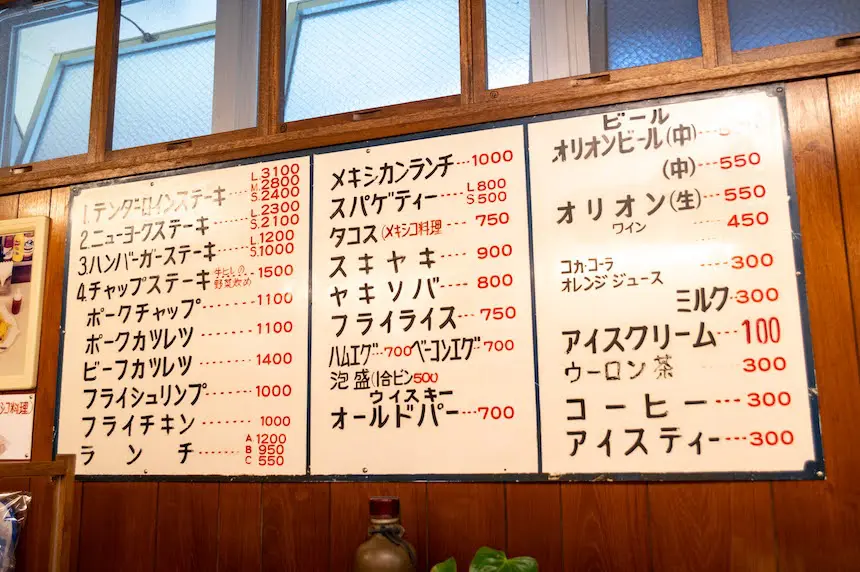 1.テンダーロインステーキ L.3100 M.2800 S.2400
2.ニューヨークステーキ L.2300 S.2100
3.ハンバーガーステーキ L.1200 S.1000
4.チャップステーキ 牛ヒレの野菜炒め 1500
ポークチャップ 1100
ポークカツレツ 1100
ビーフカツレツ 1400
フライシュリンプ 1000
フライチキン 1000
ランチ A 1200 B 950 C 550
メキシカンランチ 1000
スパゲティー L800 S500
タコス(メキシコ料理 750
スキヤキ 900
ヤキソバ 800
フライライス 750
ハムエグ 700 ベーコンエグ 700
泡盛(1合ビン 500
ウイスキー
オールドパー 700
ビール
オリオンビール(中)
(中) 550
オリオン(生) 550
ワイン 450
コカ・コーラ
オレンジジュース 300
ミルク 300
アイスクリーム 100
ウーロン茶 300
コーヒー 300
アイスティー 300
シコ料理)